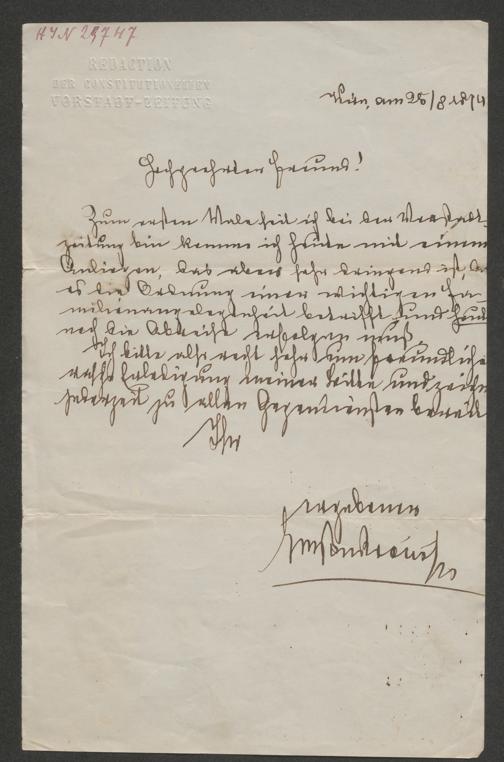 HIN 29747
REDACTION
DER CONSTITUTIONELLEN
VORSTADT-ZEITUNG
Wien, am 25/8 1874
Hochgeehrter Freund!
Zum ersten Male seit ich bei der Vorstadt-
zeitung bin komme ich heute mit einem
Anliegen, das aber sehr dringend ist, da
es die Ordnung einer wichtigen Fa-
milienangelegenheit betrifft und heute
noch die Abreise erfolgen muß.
Ich bitte also recht sehr um freundliche
rasche Erledigung meiner Bitte und zeichne
jederzeit zu allen Gegendiensten bereit
Ihr
ergebener